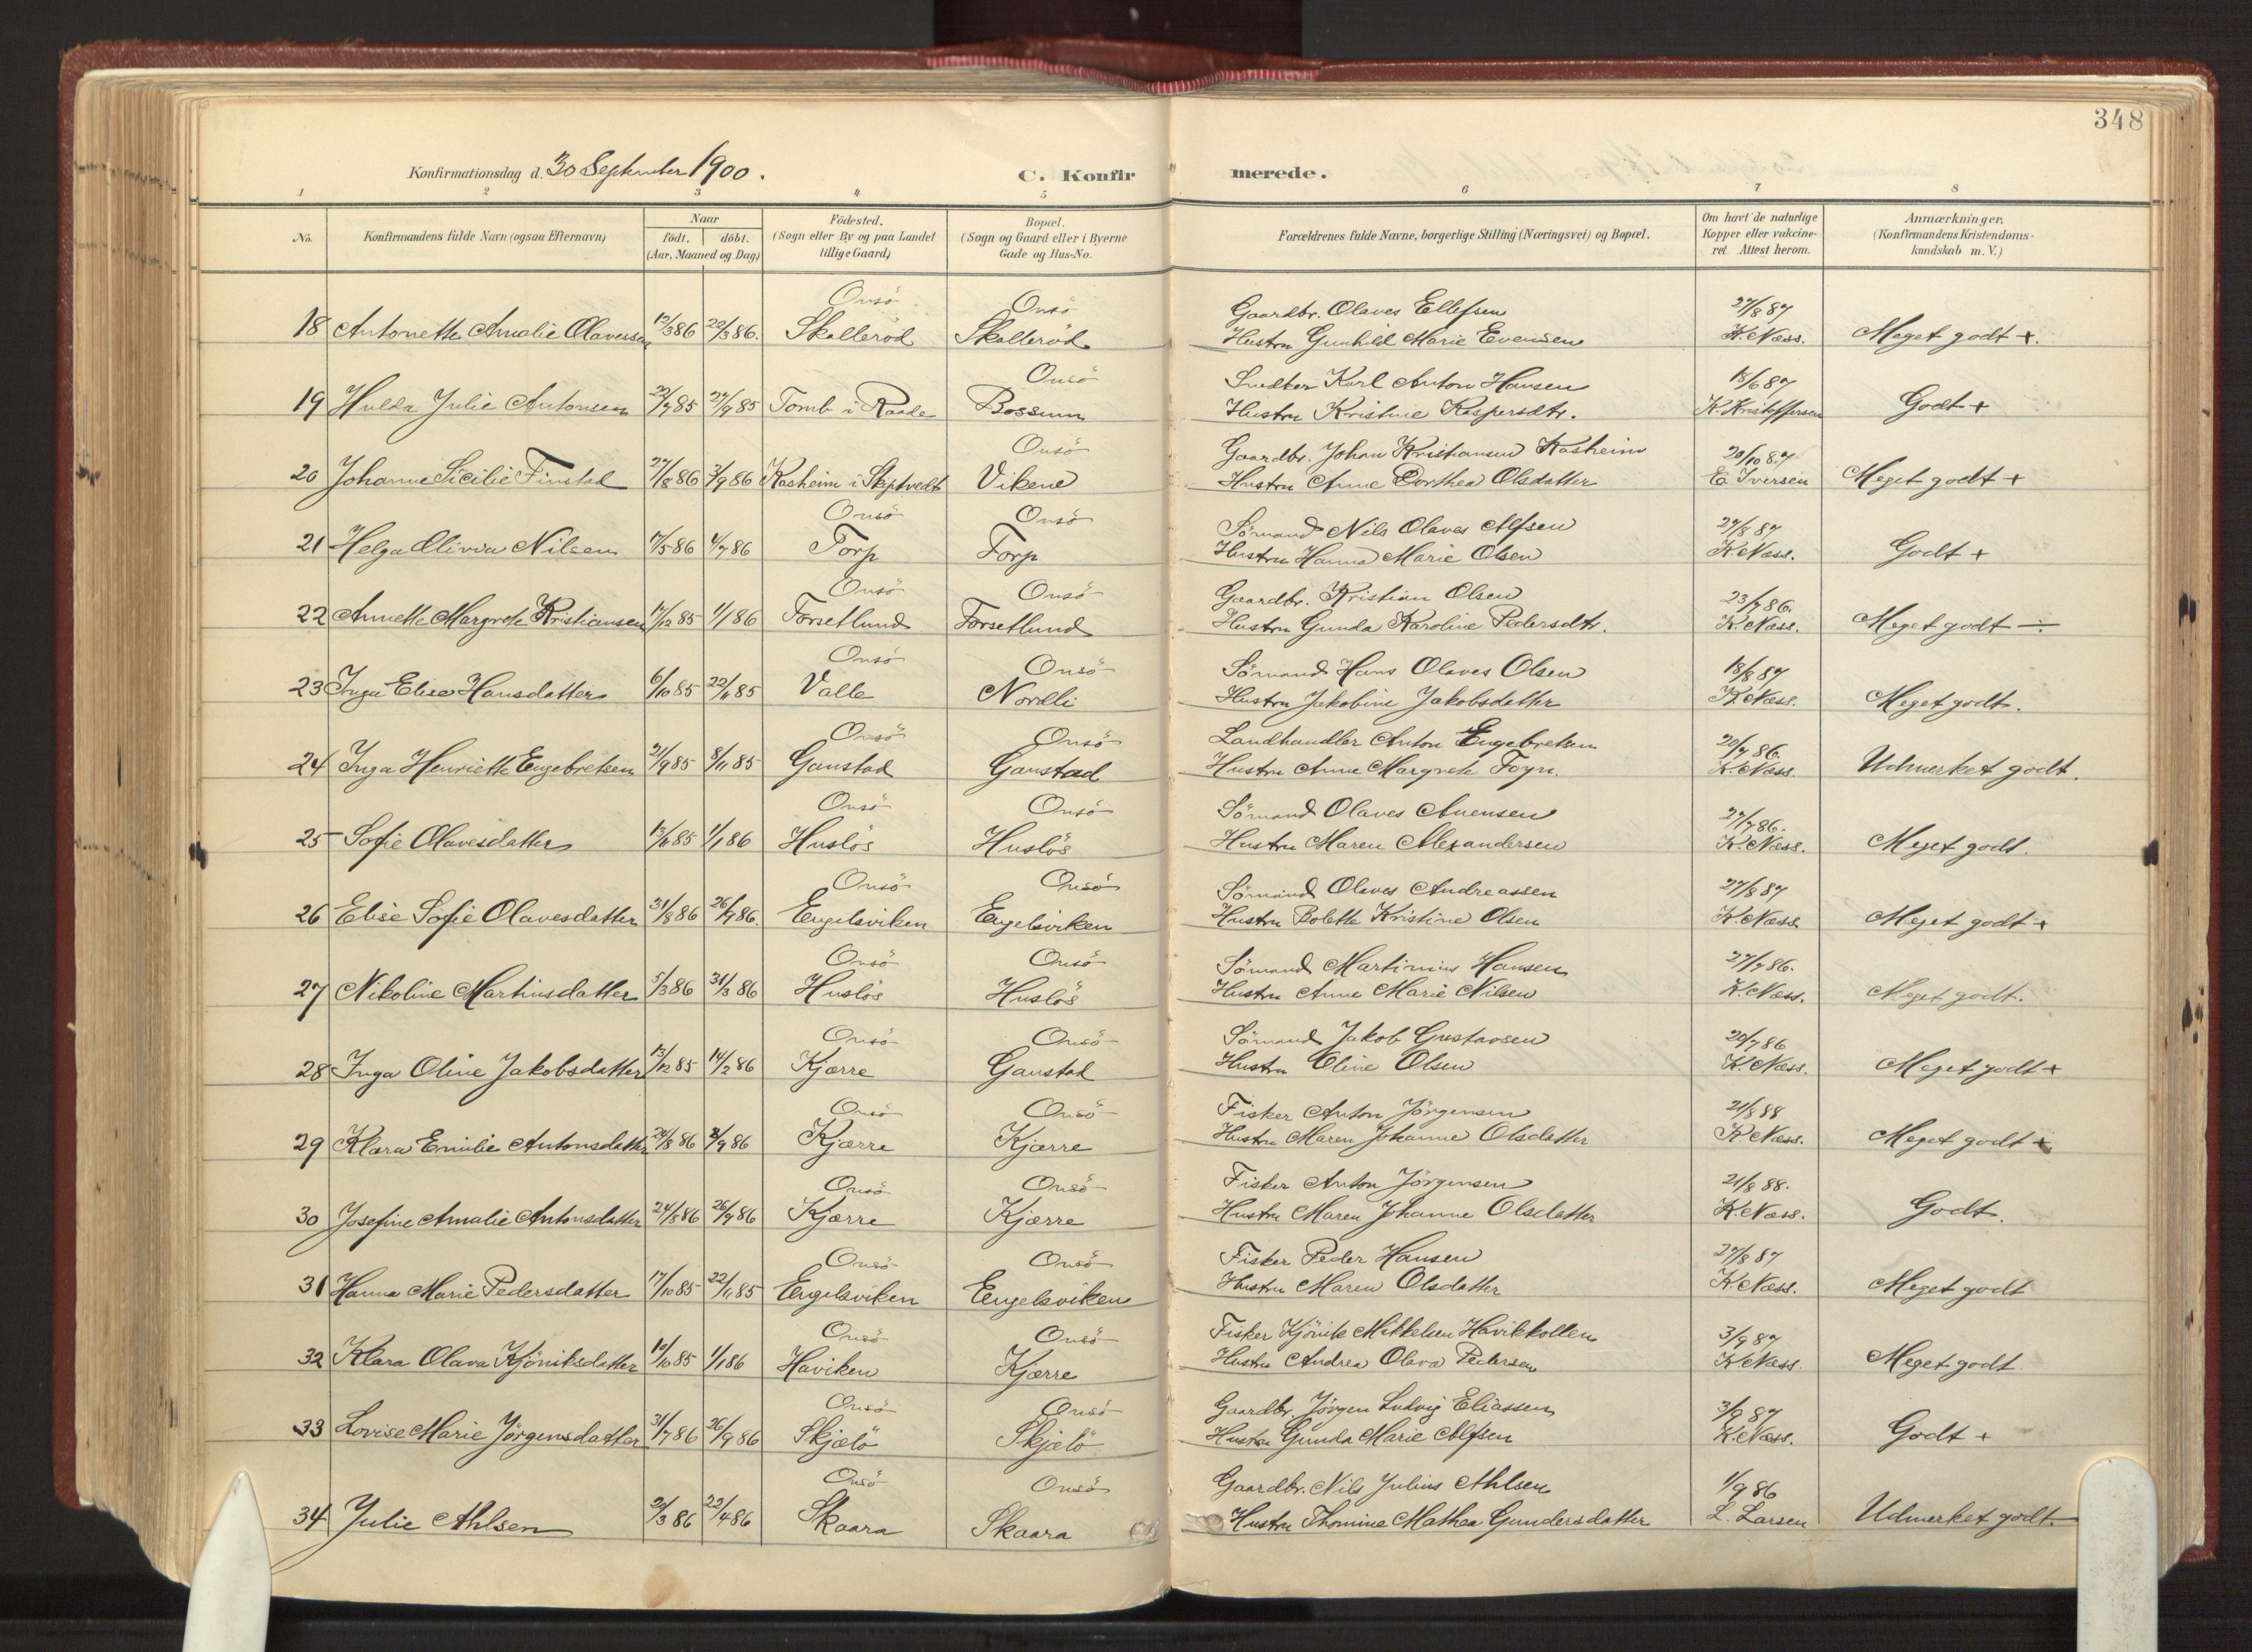 348
Konfirmationsdag d. 30 September 1900.
C. Konfirmerede.
1 2 3 4 5 6 7 8
No.
Konfirmandens fulde Navn (ogsaa Efternavn)
Naar
født. døbt.
(Aar, Maaned og Dag)
Fødested.
(Sogn eller By og paa Landet
tillige Gaard)
Bopæl.
(Sogn og Gaard eller i Byerne
Gade og Hus-No.
Forældrenes fulde Navne, borgerlige Stilling (Næringsvei) og Bopæl.
Om havt de naturlige
Kopper eller vakcine-
ret. Attest herom.
Anmærkninger.
(Konfirmandens Kristendoms-
kundskab m. V.)
Onsö Onsö Gaardbr. Olaves Ellefsen 27/8 87
18 Antonette Amalie Olavessen 12/3 86 22/3 86. Skallerød Skallerød Hustru Gunhild Marie Evensen K. Næss. Meget godt +.
Onsö Snedker Karl Anton Hansen 18/6 87
19 Hulda Julie Antonsen 85 27/9 85 Tomb i Raade Bossum Hustru Kristine Kaspersdtr. K. Kristoffersen Godt +
Onsö Gaardbr. Johan Kristiansen Kasheim 20/10 87
20 Johanne Sicilie Finstad 27/8 86 3/9 86 Kasheim i Skiptvedt Vikene Hustru Anne Dorthea Olsdatter E Iversen Meget godt +
Onsö Onsö Sömand Nils Olaves Alfsen 27/8 87
21 Helga Olivia Nilsen 7/5 86 4/7 86 Torp Torp Hustru Hanna Marie Olsen K. Næss. Godt +
Onsö Onsö Gaardbr. Kristian Olsen 23/7 86.
22 Annette Margrete Kristiansen 17/12 85 1/1 86 Forsetlund Forsetlund Hustru Gunda Karoline Pedersdtr. K. Næss. Meget godt ÷
Onsö Onsö Sömand Hans Olaves Olsen 18/8 87
23 Inga Elise Hansdatter 6/10 85 22/11 85 Valle Nordli Hustru Jakobine Jakobsdatter K. Næss. Meget godt.
Onsö Onsö Landhandler Anton Engebretsen 20/7 86.
24 Inga Henriette Engebretsen 21/9 85 8/11 85 Gaustad Gaustad Hustru Anne Margrete Foyn. K. Næss. Udmerket godt.
Onsö Onsö Sömand Olaves Auensen 27/7 86.
25 Sofie Olavesdatter 85 1/1 86 Huslös Huslös Hustru Maren Alexandersen K. Næss. Meget godt.
Onsö Onsö Sömand Olaves Andreassen 27/8 87
26 Elise Sofie Olavesdatter 31/8 86 86. Engelsviken Engelsviken Hustru Bolette Kristine Olsen K. Næss Meget godt +
Onsö Onsö Sömand Martinius Hansen 27/7 86.
27 Nikoline Martinsdatter 5/3 86 31/3 86 Huslös Huslös Hustru Anne Marie Nilsen K. Næss. Meget godt.
Onsö Onsö Sömand Jakob Gustavsen 20/7 86
28 Inga Oline Jakobsdatter 13/12 85 14/2 86 Kjærre Gaustad Hustru Oline Olsen K. Næss. Meget godt +
Onsö Onsö Fisker Anton Jörgensen 21/8 88
29 Klara Emilie Antonsdatter 24/8 86 86 Kjærre Kjærre Hustru Maren Johanne Olsdatter K. Næss. Meget godt +
Onsö Onsö Fisker Anton Jörgensen 21/8 88.
30 Josefine Amalie Antonsdatter 24/8 86 26/9 86 Kjærre Kjærre Hustru Maren Johanne Olsdatter K. Næss. Godt.
Onsö Onsö Fisker Peder Hansen 27/8 87
31 Hanna Marie Pedersdatter 17/10 85 22/11 85 Engelsviken Engelsviken Hustru Maren Olsdatter K. Næss. Meget godt
Onsö Onsö Fisker Kjönik Mikkelsen Havikkollen 3/9 87
32 Klara Olava Kjöniksdatter 85 1/1 86 Haviken Kjærre Hustru Andrea Olava Pedersen K. Næss. Meget godt.
Onsö Onsö Gaardbr. Jörgen Ludvig Eliassen 3/9 87
33 Lovise Marie Jörgensdatter 31/7 86 26/9 86 Skjælö Skjælö Hustru Gunda Marie Alfsen K. Næss. Godt +
Onsö Onsö Gaardbr. Nils Julius Ahlsen 1/9 86
34 Julie Ahlsen 86 22/4 86 Skaara Skaara Hustru Thomine Mathea Gundersdatter L. Larsen Udmerket godt.